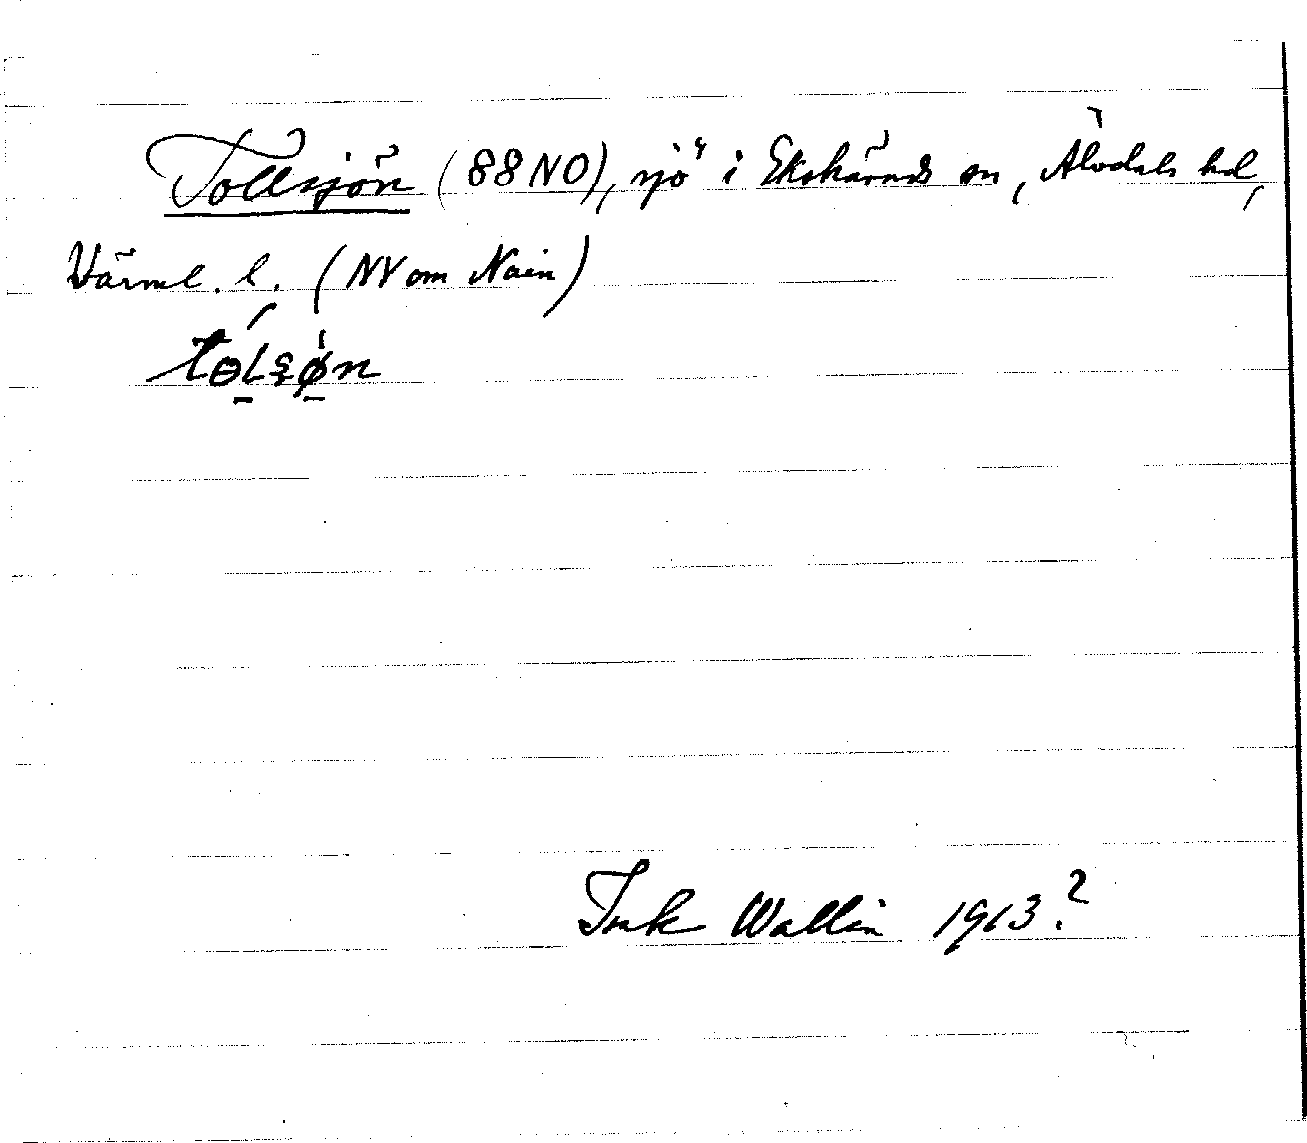 Tollsjön (88 NO), sjö i Ekshärads sn, Älvdals hd,
Värml. l. (NV om Nain)
tɵlʂøn
Wallin 1913?